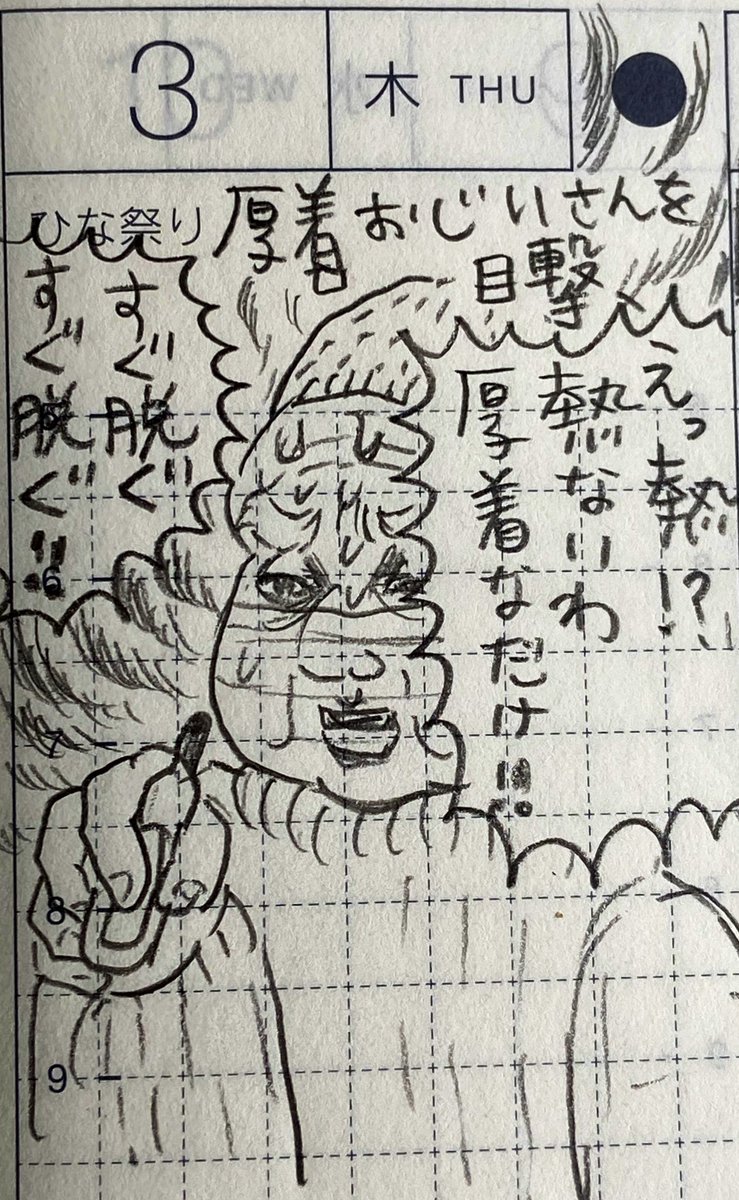 3
木 THU
ひな祭り
厚着おじいさんを
目撃
えっ熱!?
熱ないわ
厚着なだけ!!!
すぐ脱ぐ
すぐ脱ぐ!!
6
7
8
9